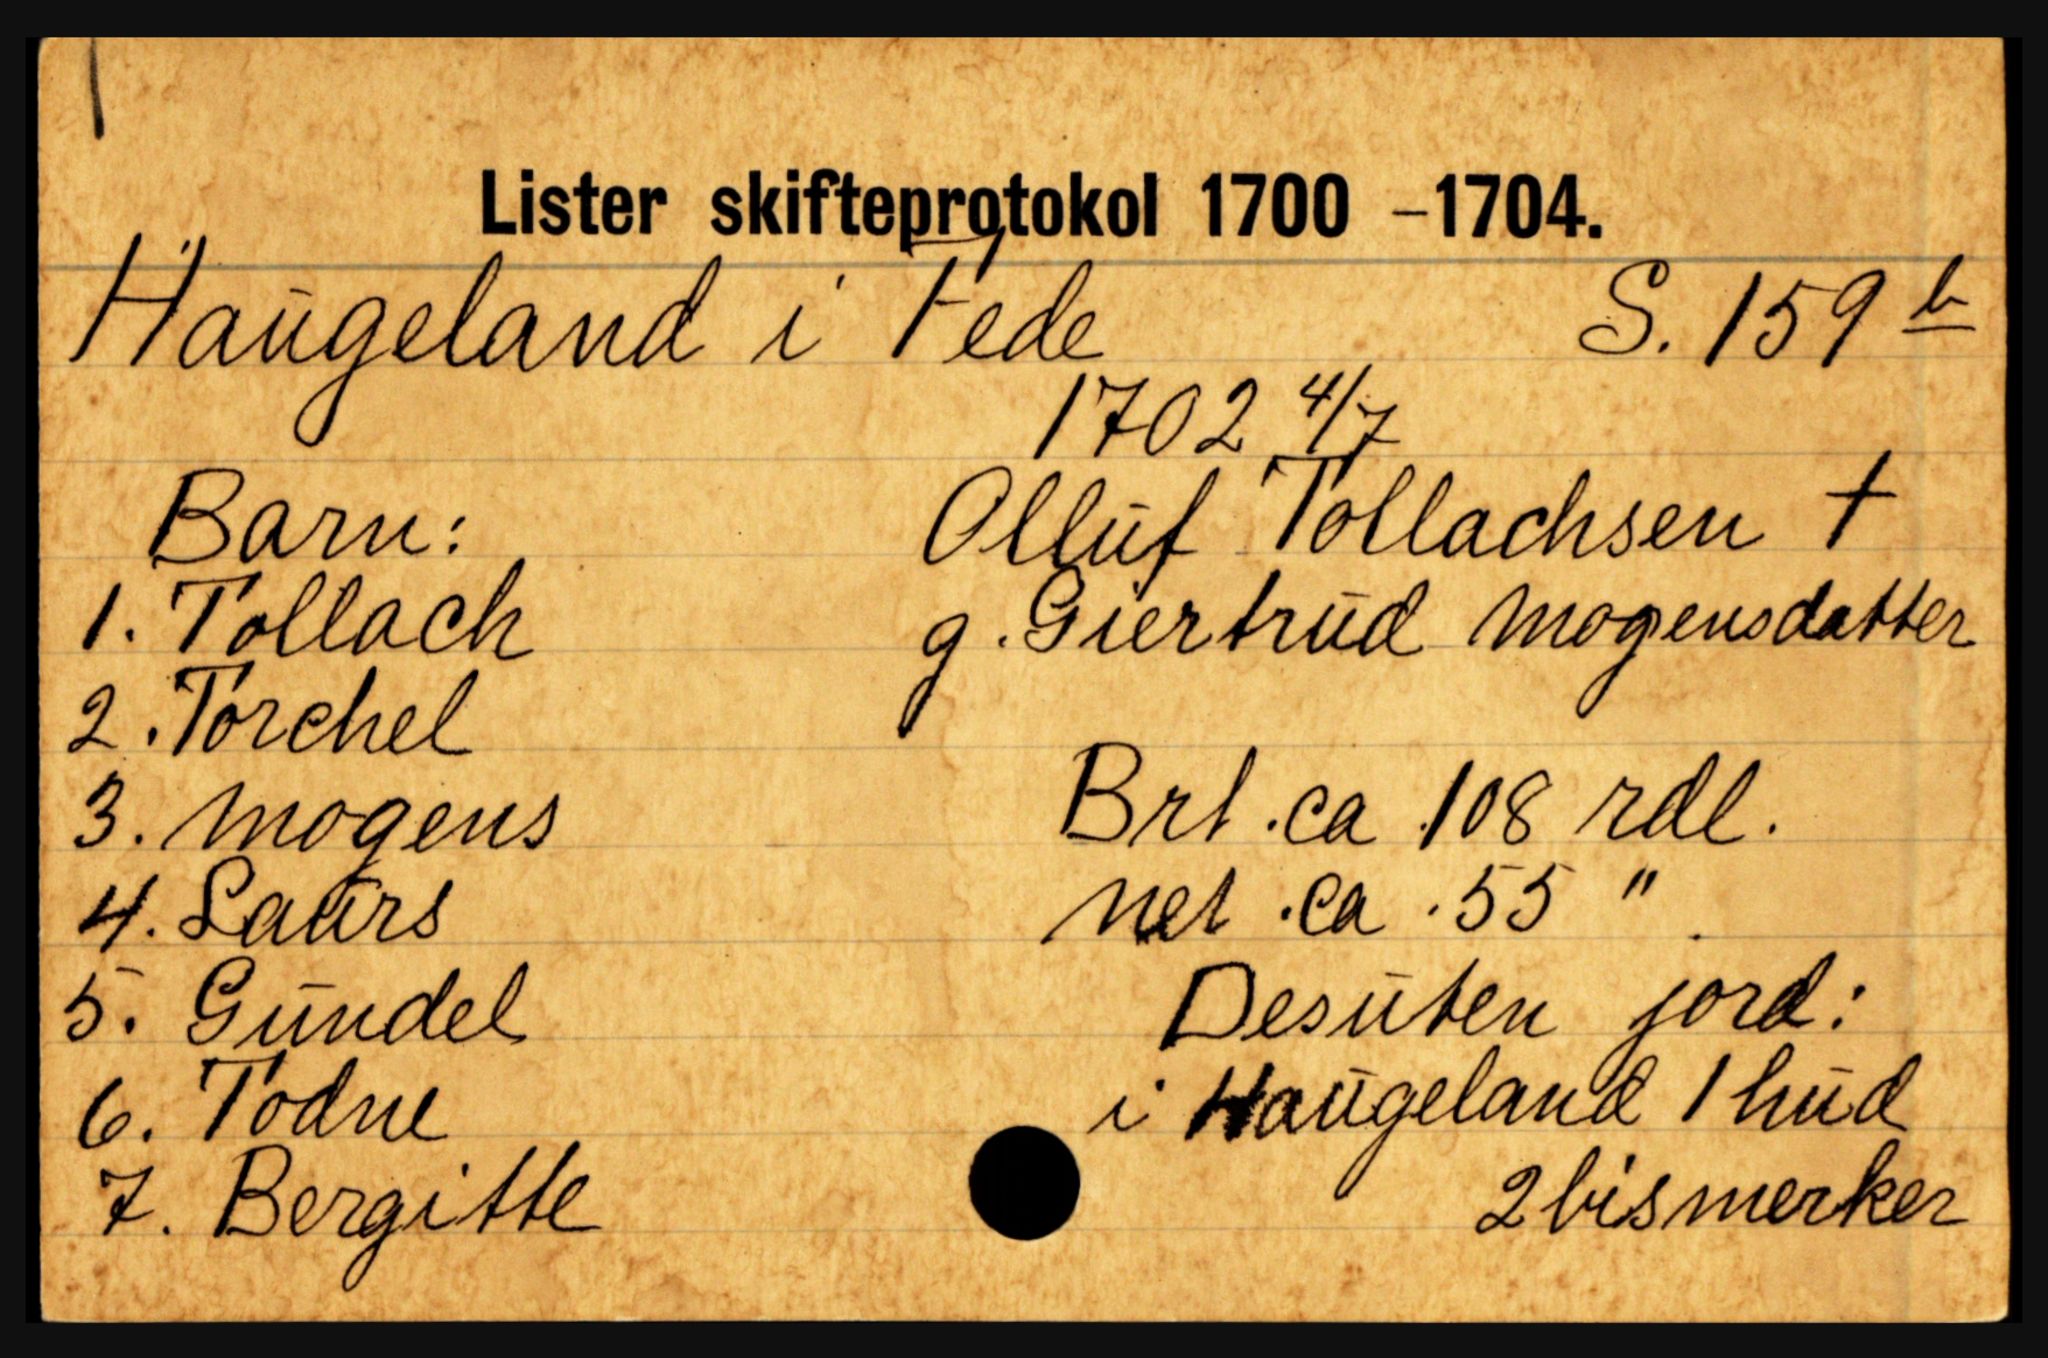 Lister skifteprotokol 1700 – 1704.
Haugeland i Fede S. 159 b
1702 4/7
Barn: Olluf Tollachsen †
1. Tollach g. Giertrud Mogensdatter
2. Torchel
3. Mogens Brt. ca 108 rdl.
4. Laurs net. ca. 55 " .
5. Gundel Desuten jord:
6. Todne i Haugeland 1 hud
7. Bergitte 2 bismerker